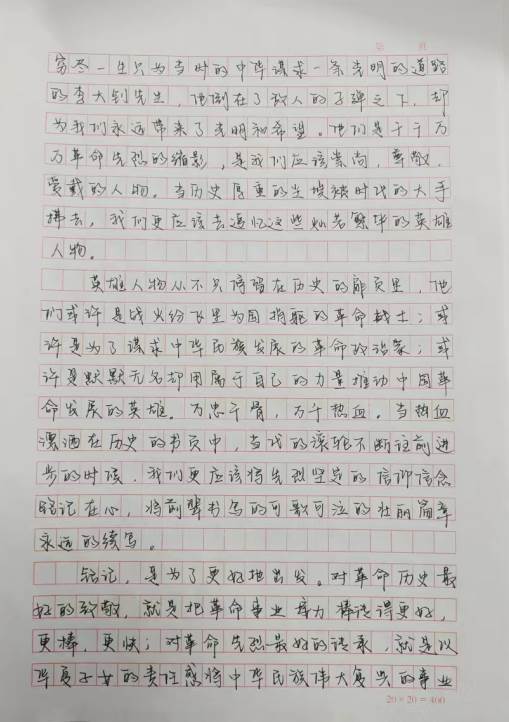 第 页
穷尽一生只为当时的中华谋求一条光明的道路
的李大钊先生，他倒在了敌人的子弹之下，却
为我们永远带来了光明和希望。他们是千千万
万革命先烈的缩影，是我们应该崇尚，尊敬，
爱戴的人物。当历史厚重的尘埃被时代的大手
拂去，我们更应该去追忆这些灿若繁华的英雄
人物。
英雄人物从不只停留在历史的扉页里，他
们或许是战火纷飞里为国捐躯的革命战士；或
许是为了谋求中华民族发展的革命政治家；或
许是默默无名却用属于自己的力量推动中国革
命发展的英雄。万忠千骨，万千热血。当热血
漂洒在历史的书页中，当代的滚轮不断往前进
步的时候，我们更应该将先烈坚定的信仰信念
铭记在心，将前辈书写的可歌可泣的壮丽篇章
永远的续写。
铭记，是为了更好地出发。对革命历史最
好的致敬，就是把革命事业接力棒传得更好，
更棒，更快；对革命先烈最好的传承，就是以
华夏子女的责任感将中华民族伟大复兴的事业
20×20=400